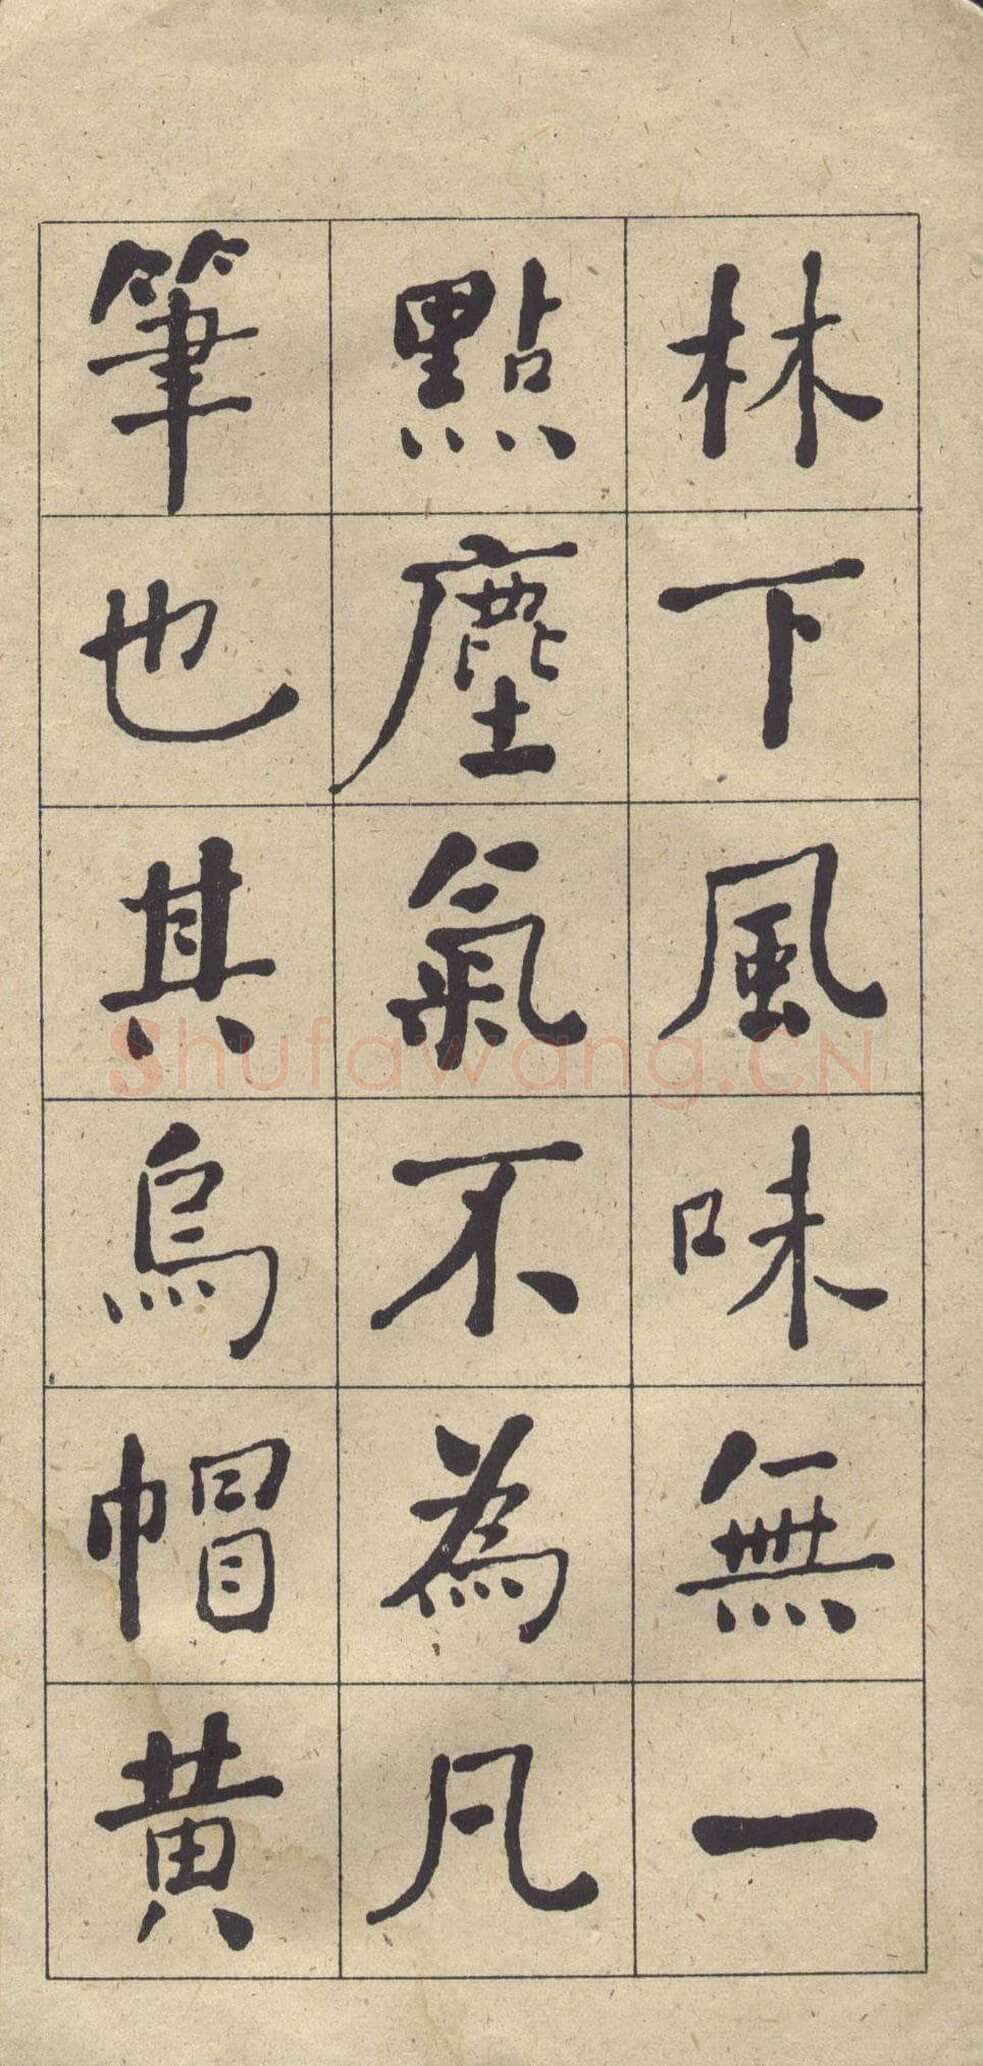 林下風味無一
點塵氣不為凡
筆也其烏帽黃
Shufawang.CN